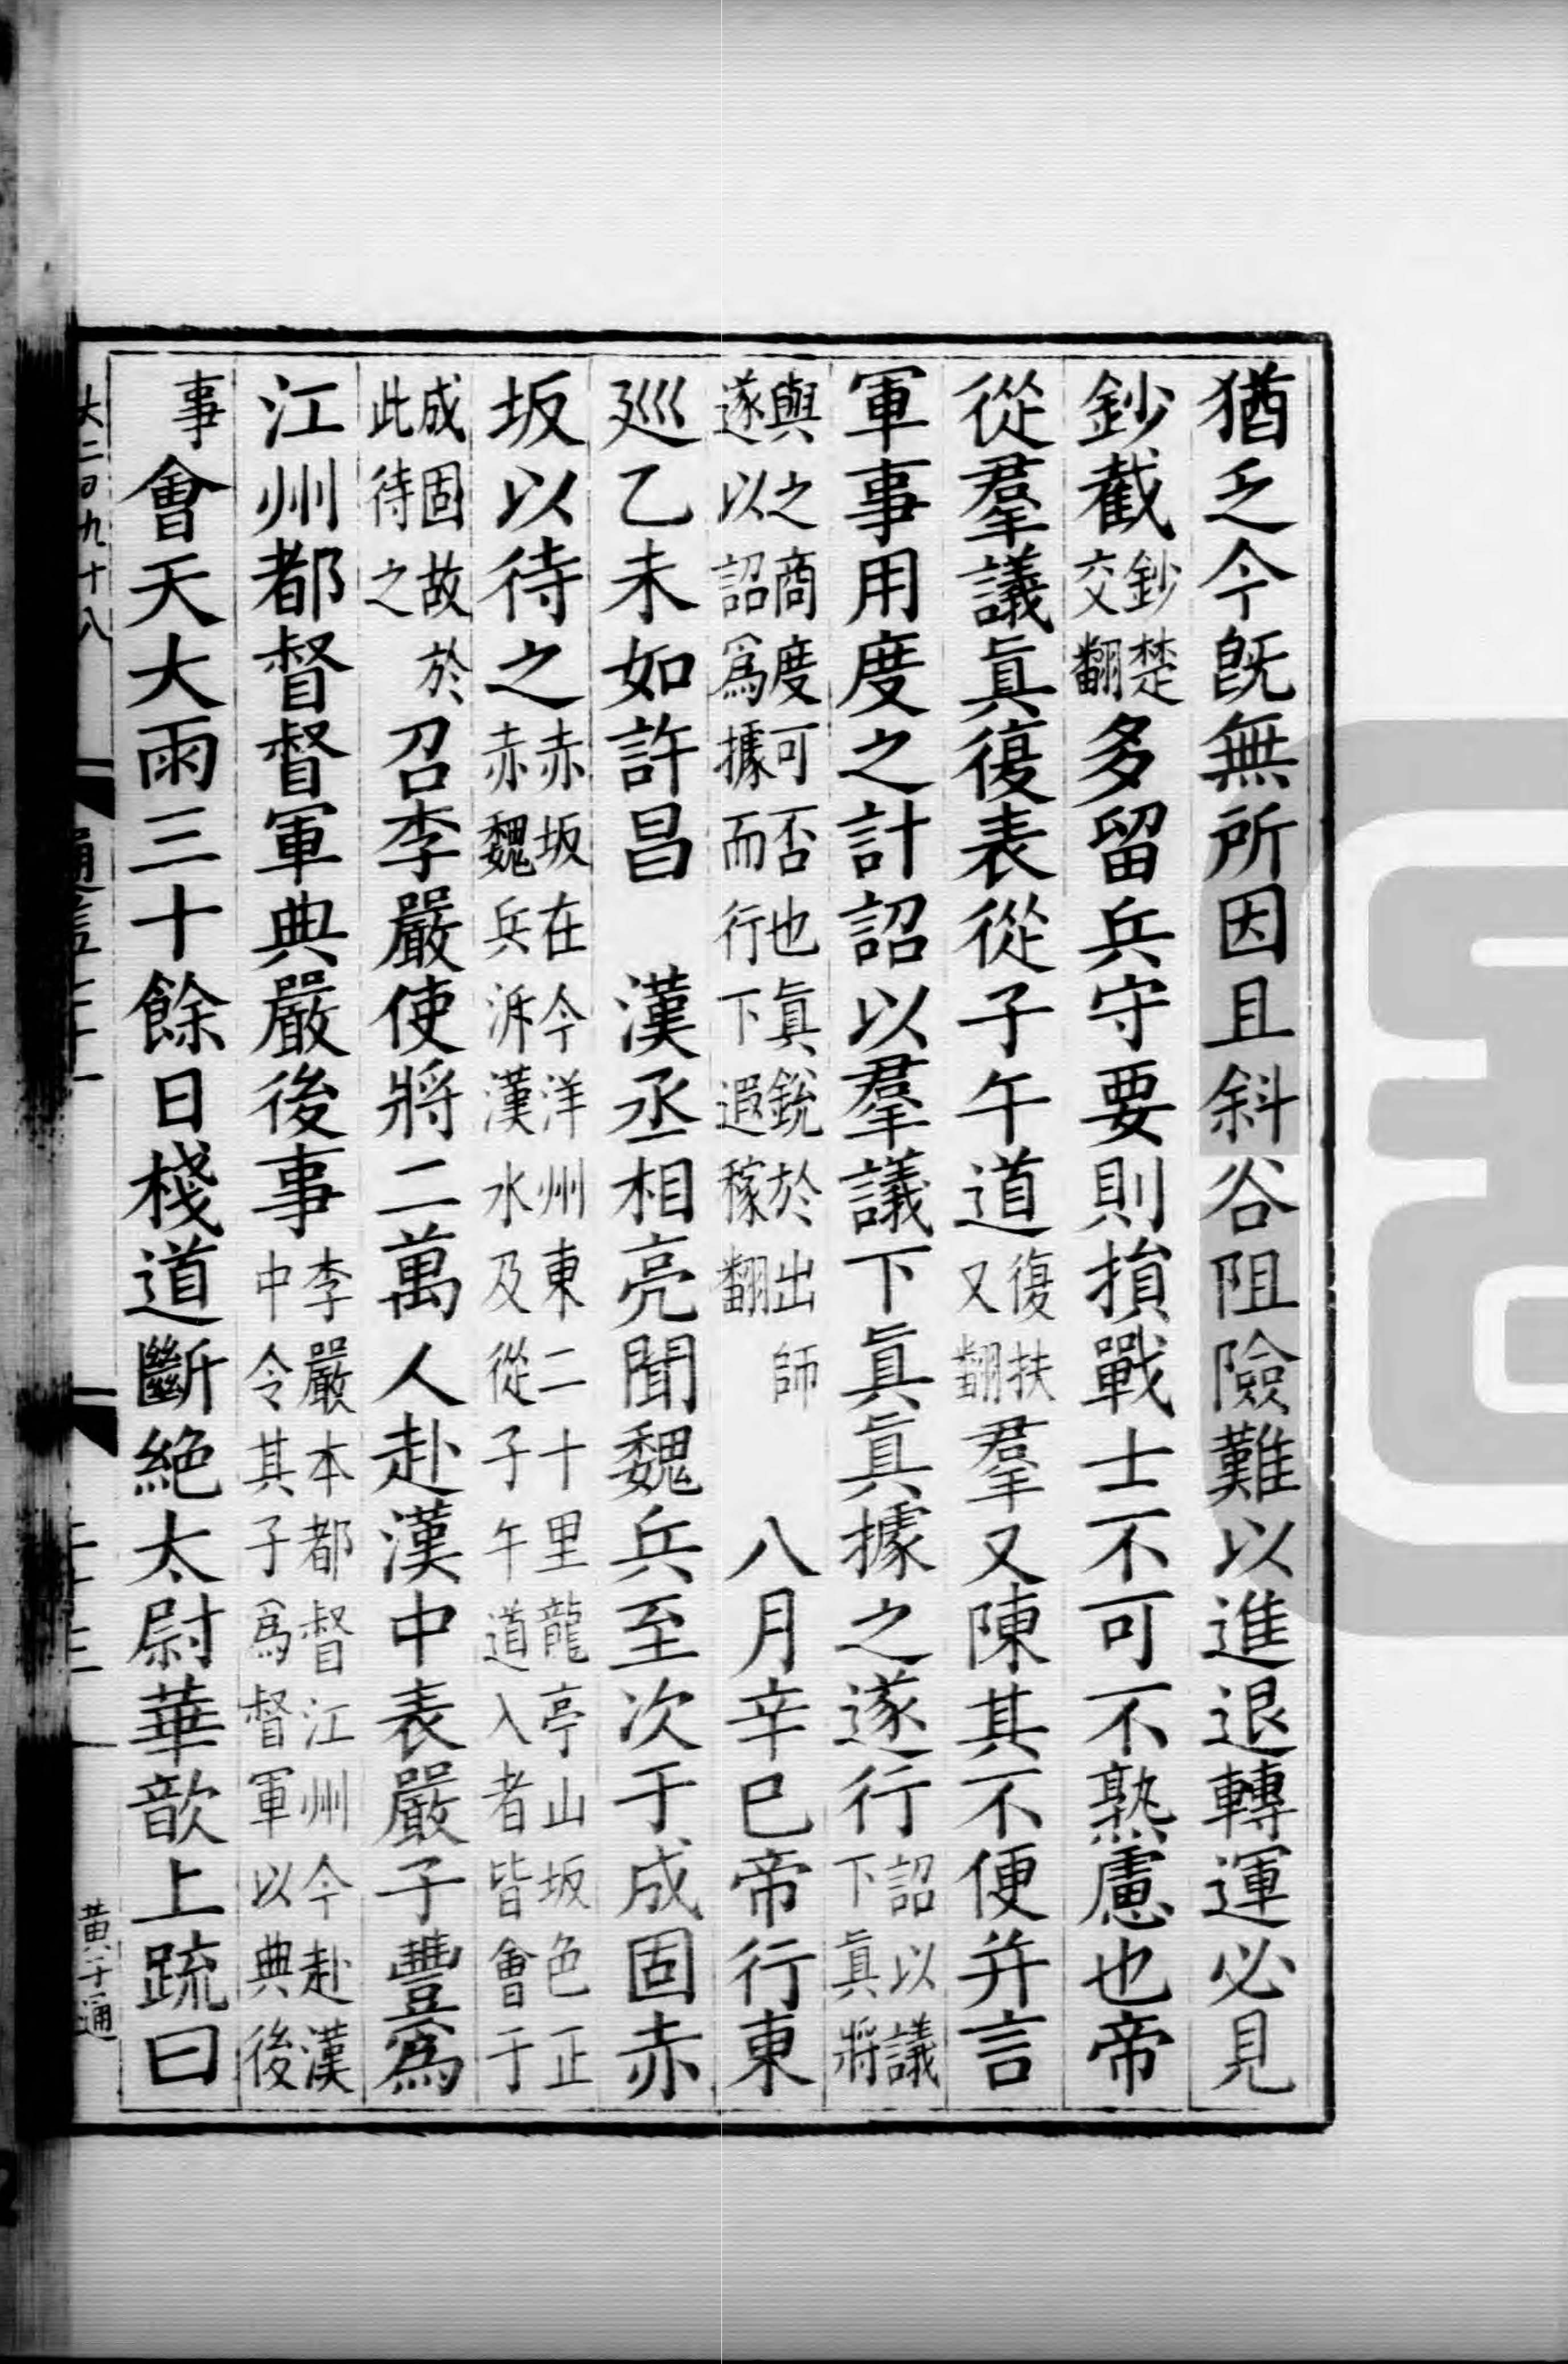 猶乏今旣無所因且斜谷阻險難以進退轉運必見
鈔截鈔楚交翻多留兵守要則損戰士不可不熟慮也帝
從羣議眞復表從子午道復扶又翻羣又陳其不便幷言
軍事用度之計詔以羣議下眞眞據之遂行詔以議下眞將
與之商度可否也眞銳於出師遂以詔爲據而行下遐稼翻八月辛巳帝行東
巡乙未如許昌 漢丞相亮聞魏兵至次于成固赤
坂以待之赤坂在今洋州東二十里龍亭山坂色正赤魏兵泝漢水及從子午道入者皆會于
成固故於此待之召李嚴使將二萬人赴漢中表嚴子豐爲
江州都督督軍典嚴後事李嚴本都督江州今赴漢中令其子爲督軍以典後
事會天大雨三十餘日棧道斷絶太尉華歆上疏曰